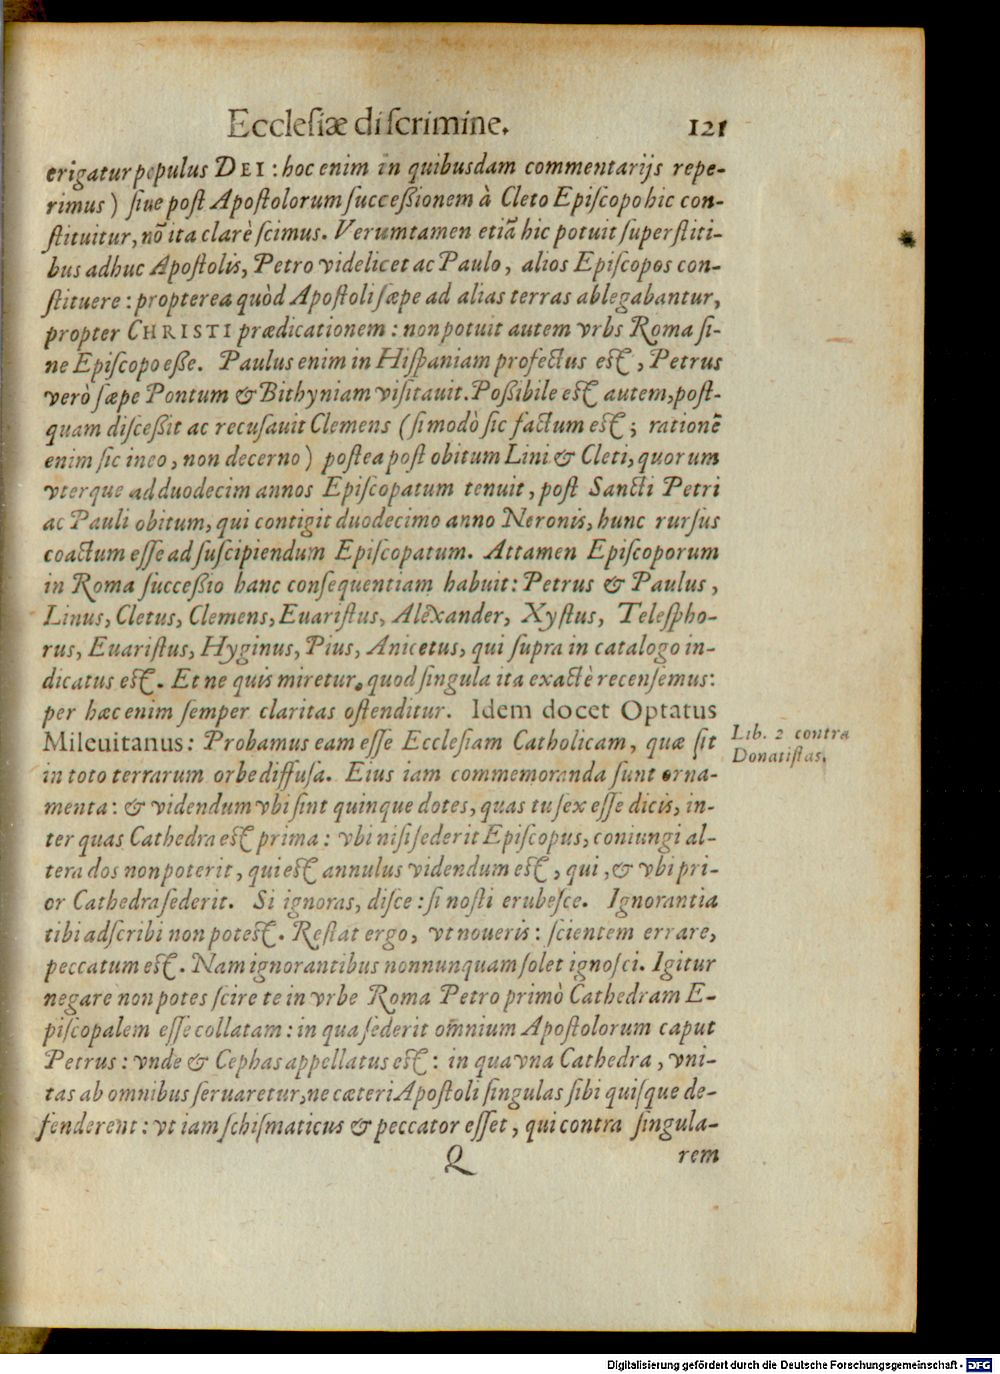 Ecclesiæ discrimine. 121
erigatur populus DEI : hoc enim in quibusdam commentarijs repe-
rimus ) siue post Apostolorum successionem à Cleto Episcopo hic con-
stituitur, nō ita clarè scimus. Verumtamen etiā hic potuit superstiti-
bus adhuc Apostolis, Petro videlicet ac Paulo, alios Episcopos con-
stituere : propterea quòd Apostoli sæpe ad alias terras ablegabantur,
propter CHRISTI prædicationem : non potuit autem vrbs Roma si-
ne Episcopo esse. Paulus enim in Hispaniam profectus est, Petrus
verò sæpe Pontum & Bithyniam visitauit. Possibile est autem, post-
quam discessit ac recusauit Clemens (si modò sic factum est; rationē
enim sic ineo, non decerno) postea post obitum Lini & Cleti, quorum
vterque ad duodecim annos Episcopatum tenuit, post Sancti Petri
ac Pauli obitum, qui contigit duodecimo anno Neronis, hunc rursus
coactum esse ad suscipiendum Episcopatum. Attamen Episcoporum
in Roma successio hanc consequentiam habuit: Petrus & Paulus,
Linus, Cletus, Clemens, Euaristus, Alexander, Xystus, Telespho-
rus, Euaristus, Hyginus, Pius, Anicetus, qui supra in catalogo in-
dicatus est. Et ne quis miretur, quod singula ita exactè recensemus:
per hæc enim semper claritas ostenditur. Idem docet Optatus
Mileuitanus: Probamus eam esse Ecclesiam Catholicam, quæ sit
in toto terrarum orbe diffusa. Eius iam commemoranda sunt orna-
menta: & videndum vbi sint quinque dotes, quas tu sex esse dicis, in-
ter quas Cathedra est prima : vbi nisi sederit Episcopus, coniungi al-
tera dos non poterit, qui est annulus videndum est, qui, & vbi pri-
or Cathedra sederit. Si ignoras, disce : si nosti erubesce. Ignorantia
tibi adscribi non potest. Restat ergo, vt noueris: scientem errare,
peccatum est. Nam ignorantibus nonnunquam solet ignosci. Igitur
negare non potes scire te in vrbe Roma Petro primò Cathedram E-
piscopalem esse collatam : in qua sederit omnium Apostolorum caput
Petrus : vnde & Cephas appellatus est : in qua vna Cathedra, vni-
tas ab omnibus seruaretur, ne cæteri Apostoli singulas sibi quisque de-
fenderent : vt iam schismaticus & peccator esset, qui contra singula-
Q rem
Lib. 2 contra
Donatistas.
Digitalisierung gefördert durch die Deutsche Forschungsgemeinschaft - DFG